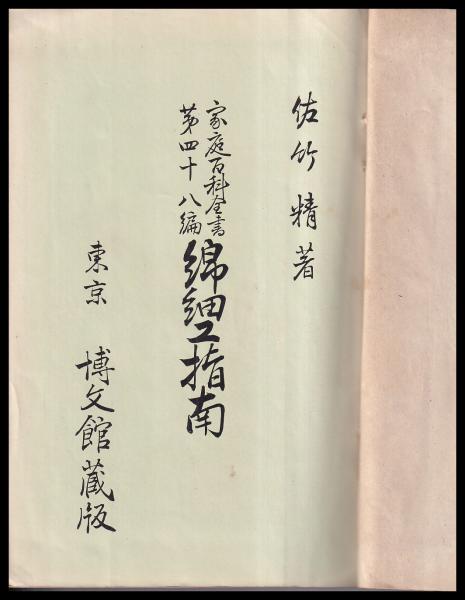 佐竹精著
家庭百科全書
第四十八編
綿細工指南
東京 博文館蔵版